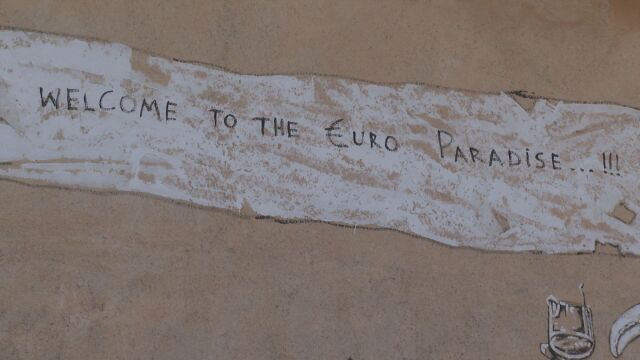 WELCOME TO THE €URO PARADiSE...!!!